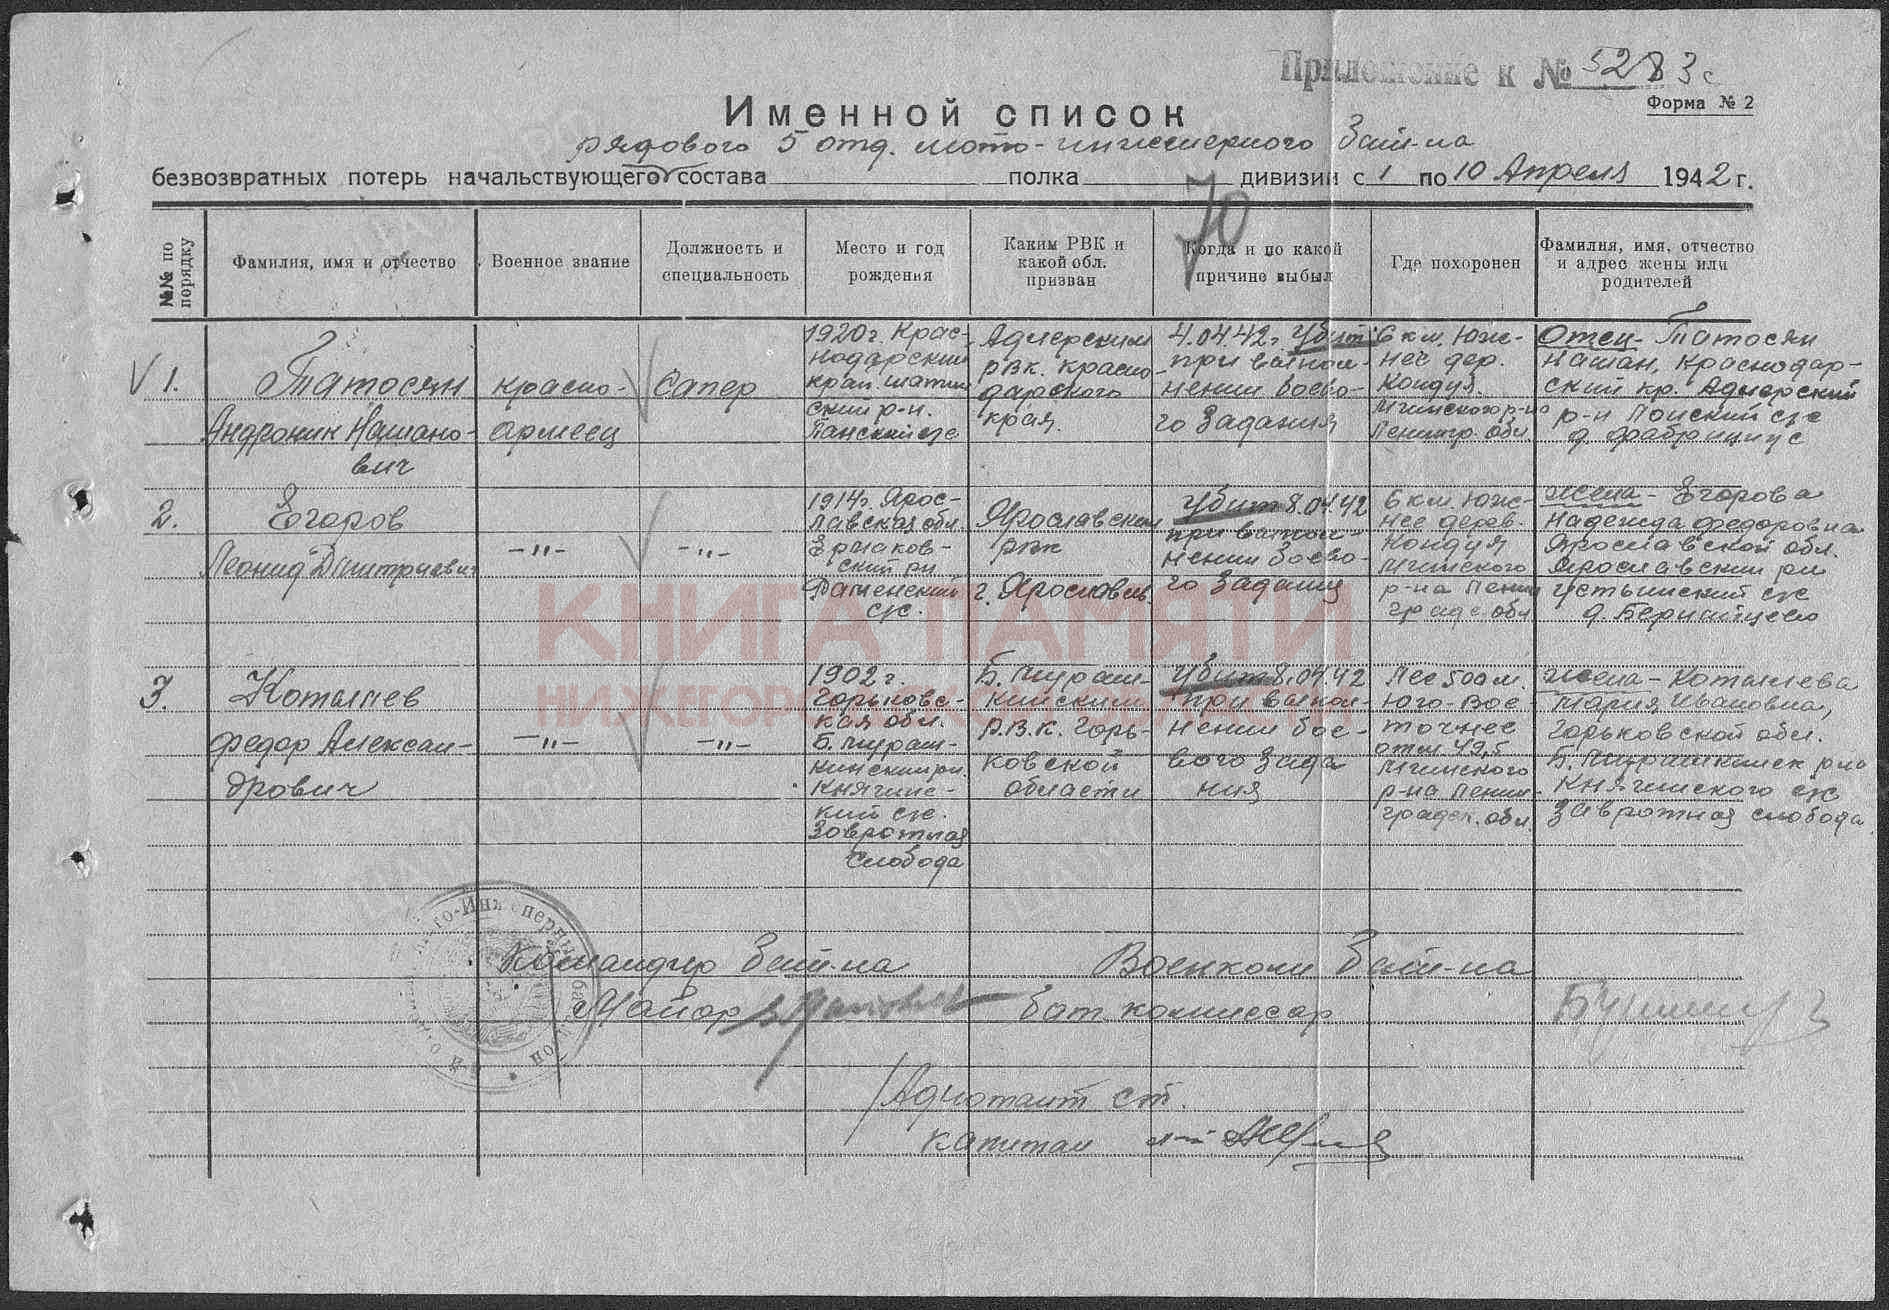 Приложение к № 5283с
Форма № 2
Именной список
рядового 5 отд. мото-инженерного бат-на
безвозвратных потерь начальствующего состава полка дивизии с 1 по 10 Апреля 1942 г.
70
№№ по порядку
Фамилия, имя и отчество
Военное звание
Должность и специальность
Место и год рождения
Каким РВК и какой обл. призван
Когда и по какой причине выбыл
Где похоронен
Фамилия, имя, отчество и адрес жены или родителей
1.
Татосян
Андроник Нашано-
вич
красно-
армеец
Сапер
1920г. Крас-
нодарский
край
ский р-н.
с/с
Адлерским
рвк. красно
дарского
края.
4.04.42г убит
при выпол-
нении боево-
го задания
6 км. Юж-
нее дер.
Кондуя
Мгинского р-на
Ленингр. обл
Отец - Татосян
Нашан, Краснодар-
ский кр. Адлерский
р-н с/с
д. Фабрициус
2.
Егоров
Леонид Дмитриевич
-"-
-"-
1914г. Ярос-
лавская обл
Ермаков-
ский рн
с/с.
Ярославским
рвк
г. Ярославль.
Убит 8.04.42
при выпол-
нении боево-
го задания
6 км. Юж-
нее дерев.
Кондуя
Мгинского
р-на Ленин
градс. обл
жена - Егорова
Надежда Федоровна
Ярославской обл.
Ярославский рн
с/с
д.
3.
Котылев
Федор Алексан-
дрович
-"-
-"-
1902г.
Горьковс-
кая обл.
Б. Мураш-
кинский рн.
Княгинс-
кий с/с.
Зовротная
слобода
Б. Мураш-
кинским
Р.В.К. Горь-
ковской
области
Убит 8.04.42
при выпол-
нении бое-
вого зада
ния
Лес 500 м.
Юго-Вос-
точнее
отм. 49,5
Мгинского
р-на Ленин-
градск. обл
жена - Котылева
Мария Ивановна,
Горьковской обл.
Б. Мурашкинск рна
Княгинского с/с
Завротная слобода
КНИГА ПАМЯТИ
НИЖЕГОРОДСКОЙ ОБЛАСТИ
Командир бат-на
Майор
Военком бат-на
бат. комиссар
Адютант ст.
капитан